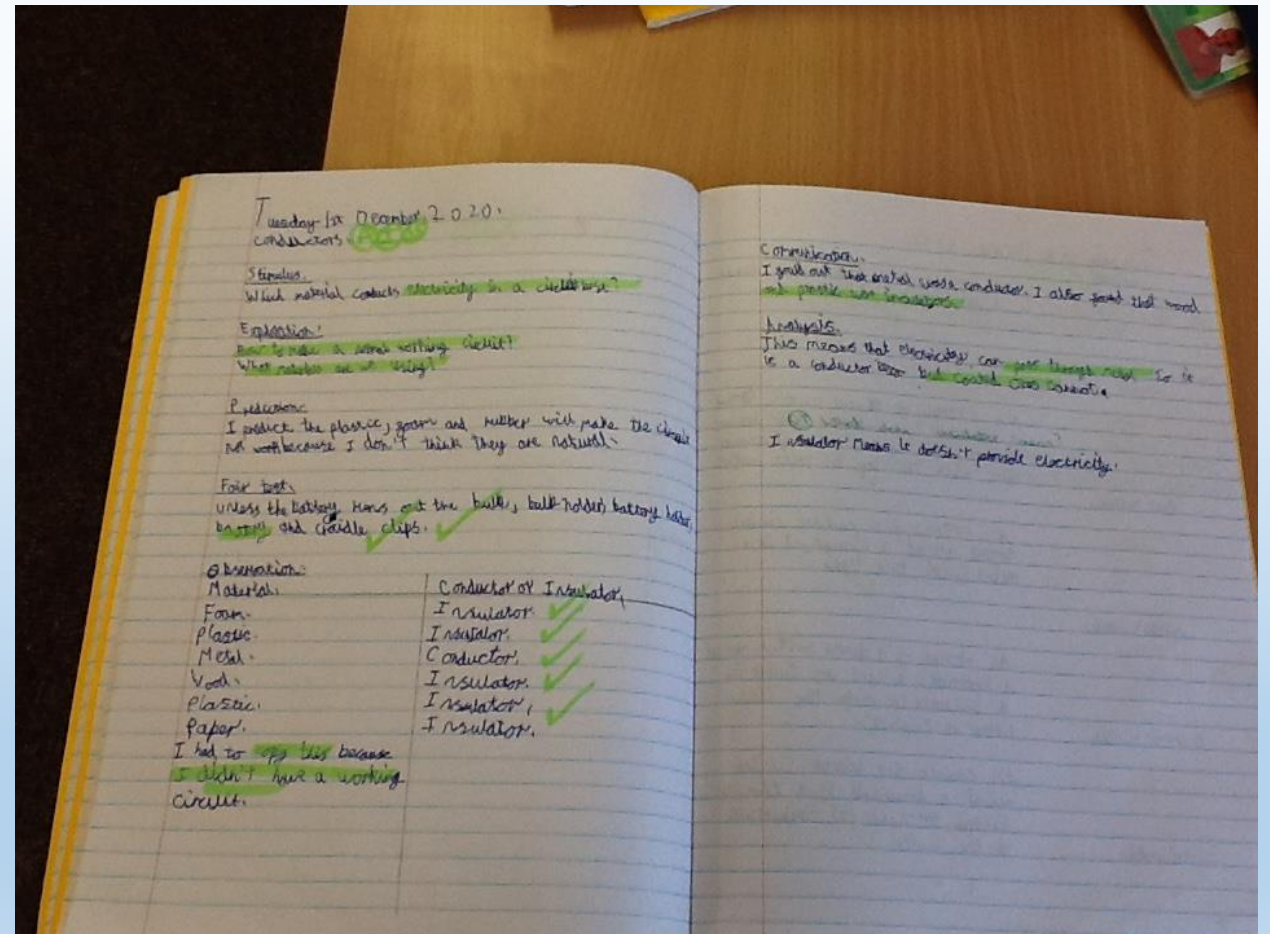 Tuesday 1st December 2020.
Conductors.
Stimulus.
Which material conducts electricity in a best?
Exploration:
How to make a working circuit?
What are we using?
Prediction:
I predict the plastic, foam and rubber will make the
not work because I don't think they are natural.
Fair test.
unless the battery runs out the bulb, bulb holder, battery holder,
battery and clips.
Observation:
Material. Conductor or Insulator.
Foam. Insulator.
Plastic. Insulator.
Metal. Conductor.
Wood. Insulator.
Plastic. Insulator.
Paper. Insulator.
I had to copy this because
I didn't have a working
circuit.
Communication.
I found out that metal was a conductor. I also found that wood
and plastic was insulators.
Analysis.
This means that electricity can pass through metal. So it
is a conductor but
What does insulator mean?
Insulator means it doesn't provide electricity.